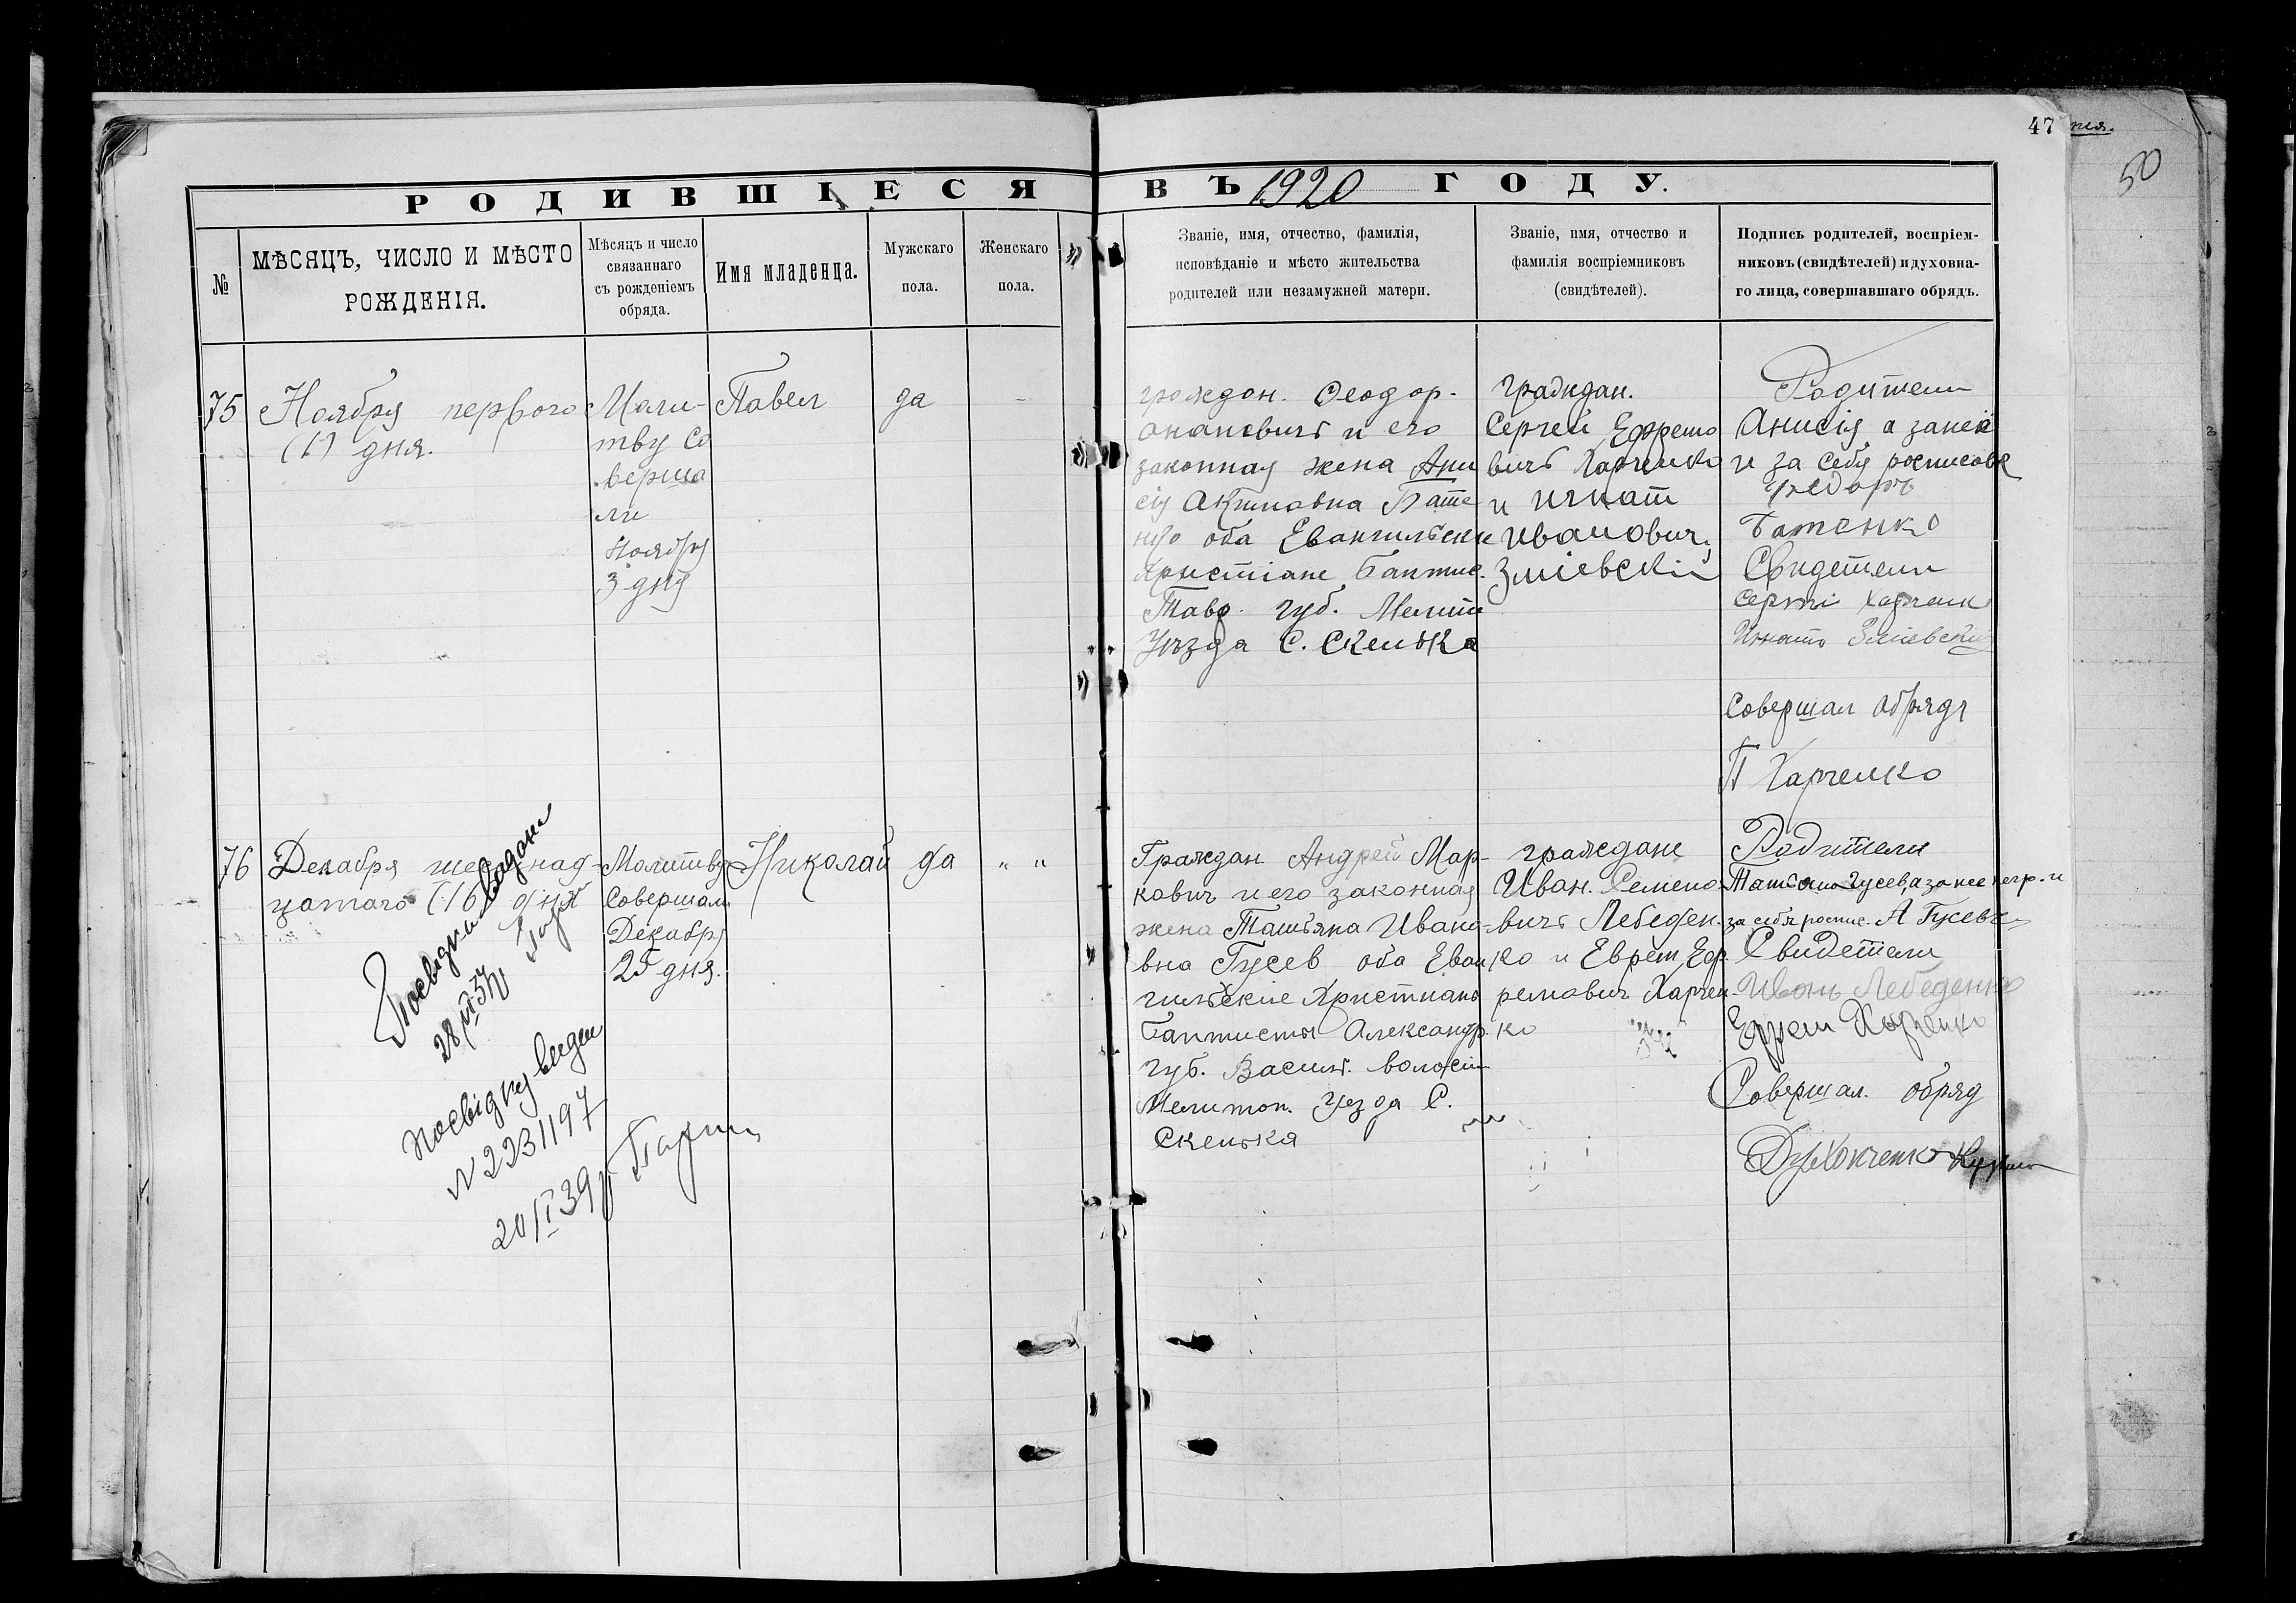 47
50
РОДИВШІЕСЯ ВЪ 1920 ГОДУ.
№
МѢСЯЦЪ, ЧИСЛО И МѢСТО
РОЖДЕНІЯ.
Мѣсяцъ и число
связаннаго
съ рожденіемъ
обряда.
Имя младенца.
Мужскаго
пола.
Женскаго
пола.
Званіе, имя, отчество, фамилія,
исповѣданіе и мѣсто жительства
родителей или незамужней матери.
Званіе, имя, отчество и
фамилія воспріемниковъ
(свидѣтелей).
Подпись родителей, воспріем-
никовъ (свидѣтелей) и духовна-
го лица, совершавшаго обрядъ.
75
Ноября первого
(1) дня.
Моли-
тву со
верша
ли
Ноября
3 дня
Павел
да
граждан. Феодор.
и его
законная жена Ани
сія Акимовна Бате
нко оба Евангильские
Христіане Баптис.
Тавр. губ. Мелит
Уѣзда С. Скелька
граждан.
Сергей Ефремо
вичъ Харченко
и Игнат
Иванович
Зміевскій
Родители
Анисія а за неё
и за себя росписовс
Федоръ
Батенко
Свидетели
Сергѣі Харченк
Игнатъ Зміевскій
Совершал обряд
П Харченко
76
Декабря шеснад-
цатаго (16) дня
Молитву
Совершали
Декабря
25 дня.
Николай
да
" "
Граждан Андрей Мар-
кович и его законная
жена Татьяна Ивано-
вна Гусев оба Еван
гильскіе Христиане
Баптисты Александр.
губ. Васил. волости
Мелитоп. Уезда С.
Скелька
граждане
Иван. Семено-
вичъ Лебеден-
ко и Ефрем Еф-
ремович Харчен-
ко
Родители
Татьяна Гусев, а за нее негр. и
за себя роспис. А Гусевъ
Свидетели
Иванъ Лебеденко
Ефрем Харченко
Совершал. обряд
Посвідку видано
28/VI 37р
Посвідку видан
N 2231197
20/II 39р